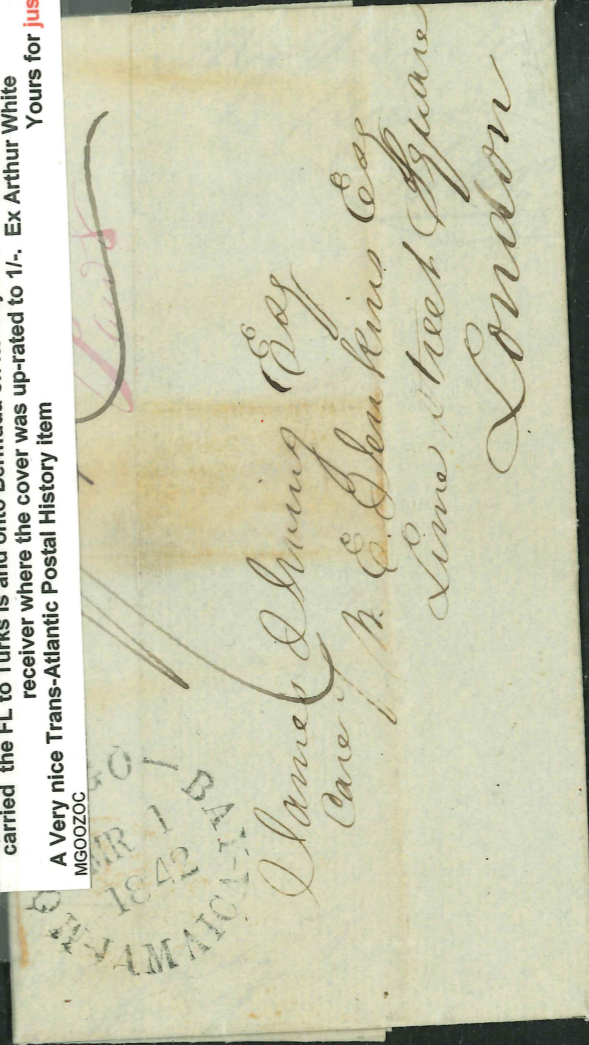 carried the FL to Turks Is and onto Bermuda
receiver where the cover was up-rated to 1/-. Ex Arthur White
Yours for jus
A Very nice Trans-Atlantic Postal History item
MGOOZOC
Paid
GO BAY
MR 1
1842
JAMAICA
James Irving Esq
Care of N. E. Jenkins Esq
Lime Street Square
London